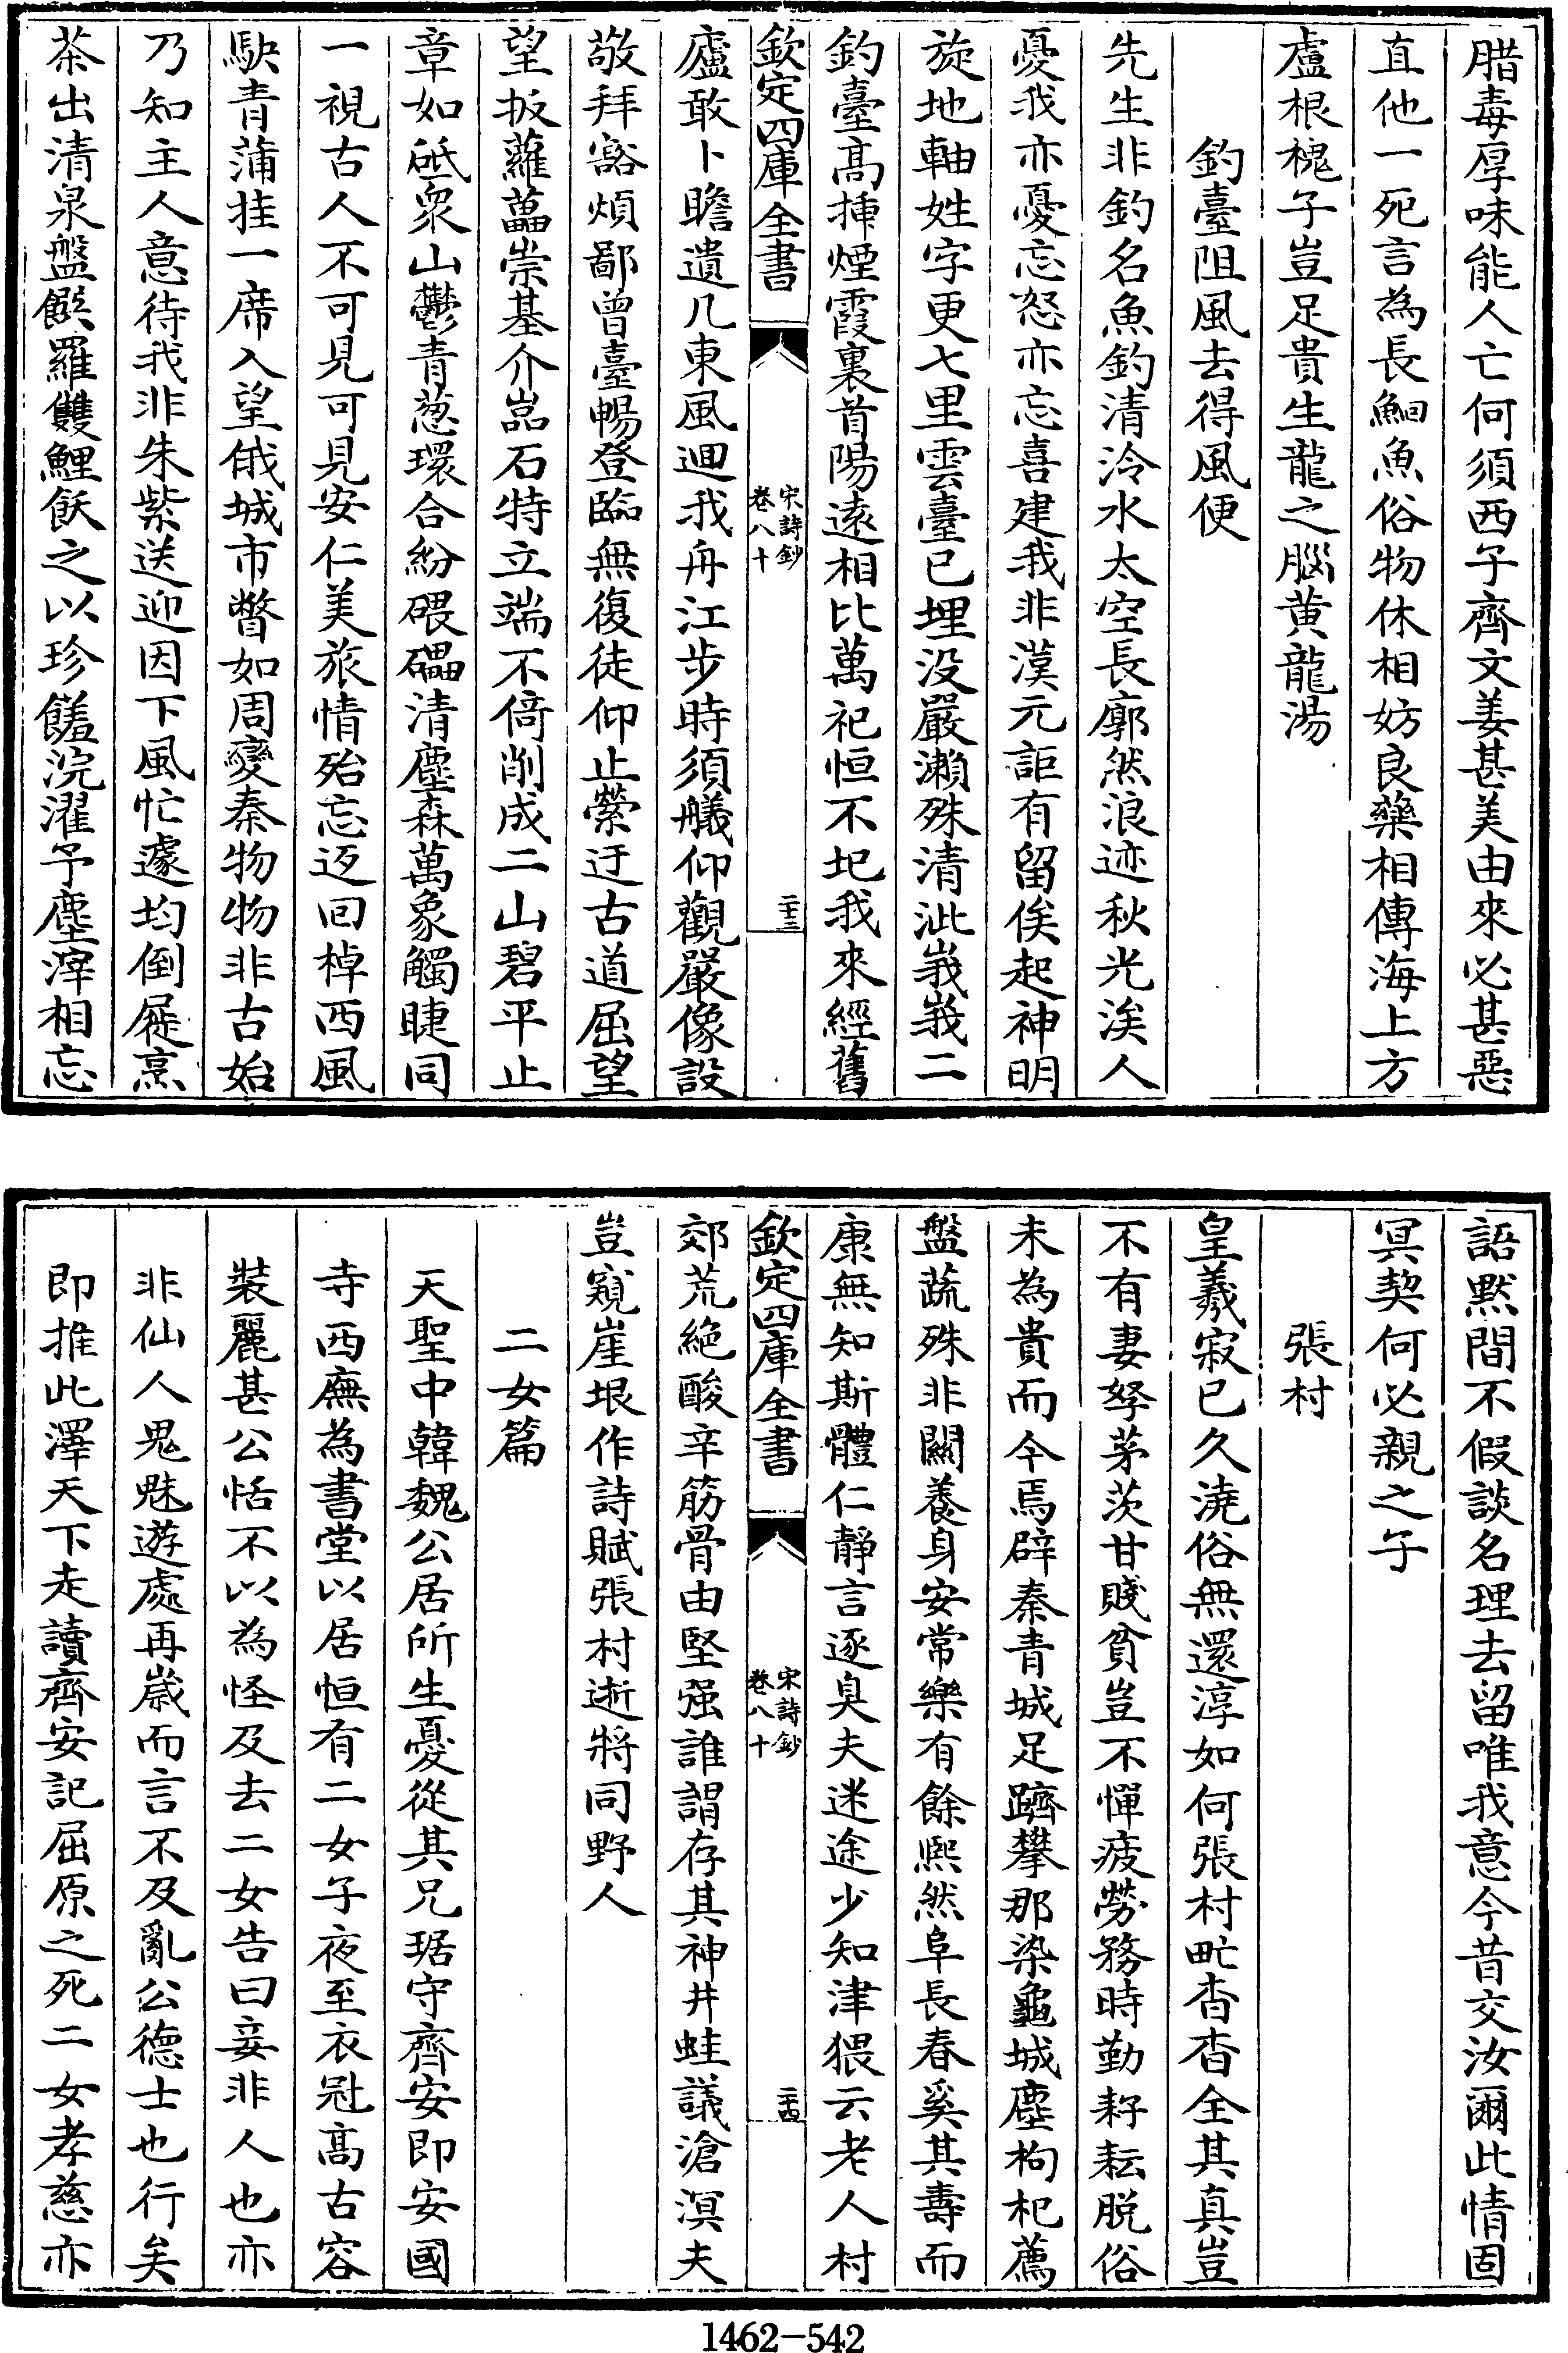 腊毒厚味能人亡何須西子齊文姜甚美由來必甚惡
直他一死言為長鮰魚俗物休相妨良藥相傳海上方
盧根槐子豈足貴生龍之腦黄龍湯
釣臺阻風去得風便
先生非釣名魚釣清泠水太空長廓然浪迹秋光涘人
憂我亦憂忘怒亦忘喜建我非漢元詎有留侯起神明
旋地軸姓字更七里雲臺已埋没嚴瀨殊清泚峩峩二
釣臺高揷煙霞裏首陽遠相比萬祀恒不圯我來經舊
欽定四庫全書
宋詩鈔
卷八十
二十三
廬敢卜瞻遺几東風迴我舟江步時須艤仰觀嚴像設
敬拜豁煩鄙曾臺暢登臨無復徒仰止縈迂古道屈望
望扳蘿藟崇基介嵓石特立端不倚削成二山碧平止
章如砥衆山鬱青葱環合紛碨礧清塵森萬象觸睫同
一視古人不可見可見安仁美旅情殆忘返回棹西風
駃青蒲挂一席入望俄城市瞥如周變秦物物非古始
乃知主人意待我非朱紫送迎因下風忙遽均倒屣烹
茶出清泉盤餱羅雙鯉飫之以珍饈浣濯予塵滓相忘
語黙間不假談名理去留唯我意今昔交汝爾此情固
冥契何必親之子
張村
皇羲寂已久澆俗無還淳如何張村甿杳杳全其真豈
不有妻孥茅茨甘賤貧豈不憚疲勞務時勤耔耘脱俗
未為貴而今焉辟秦青城足躋攀那染龜城塵枸杞薦
盤蔬殊非闗養身安常樂有餘熙然阜長春奚其壽而
康無知斯體仁靜言逐臭夫迷途少知津猥云老人村
欽定四庫全書
宋詩鈔
卷八十
二十四
郊荒絶酸辛筋骨由堅强誰謂存其神井蛙議滄溟夫
豈窺崖垠作詩賦張村逝將同野人
二女篇
天聖中韓魏公居所生憂從其兄琚守齊安即安國
寺西廡為書堂以居恒有二女子夜至衣冠高古容
裝麗甚公恬不以為怪及去二女告曰妾非人也亦
非仙人鬼魅遊處再嵗而言不及亂公德士也行矣
即推此澤天下走讀齊安記屈原之死二女孝慈亦
1462-542